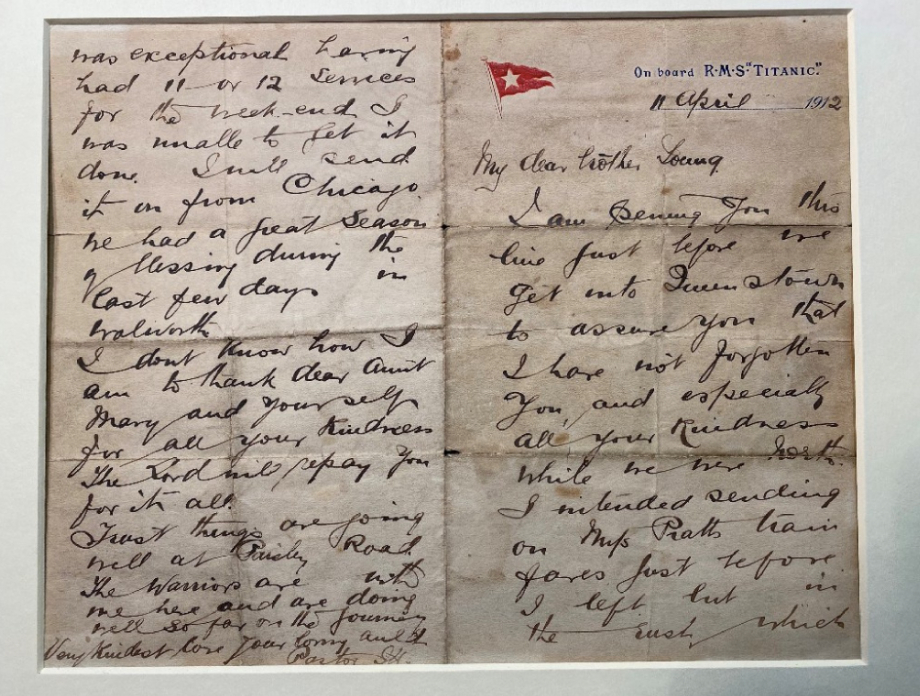 On board R·M·S·"TITANIC."
11 April 1912
My dear brother Young
I am penning you this
line just before we
get into Queenstown
to assure you that
I have not forgotten
you, and especially
all your kindness
while we were North.
I intended sending
on Miss Pratts train
fares just before
I left but in
the rush which
was exceptional having
had 11 or 12 services
for the week-end I
was unable to get it
done. I will send
it on from Chicago
we had a great season
of blessing during the
last few days in
walworth
I dont know how I
am to thank dear Aunt
Mary and yourself
for all your kindness
The Lord will repay you
for it all.
Trust things are going
well at Paisley Road
The Warriors are with
me here and are doing
well so far on the journey
Very kindest love your loving auld
Pastor J.H.